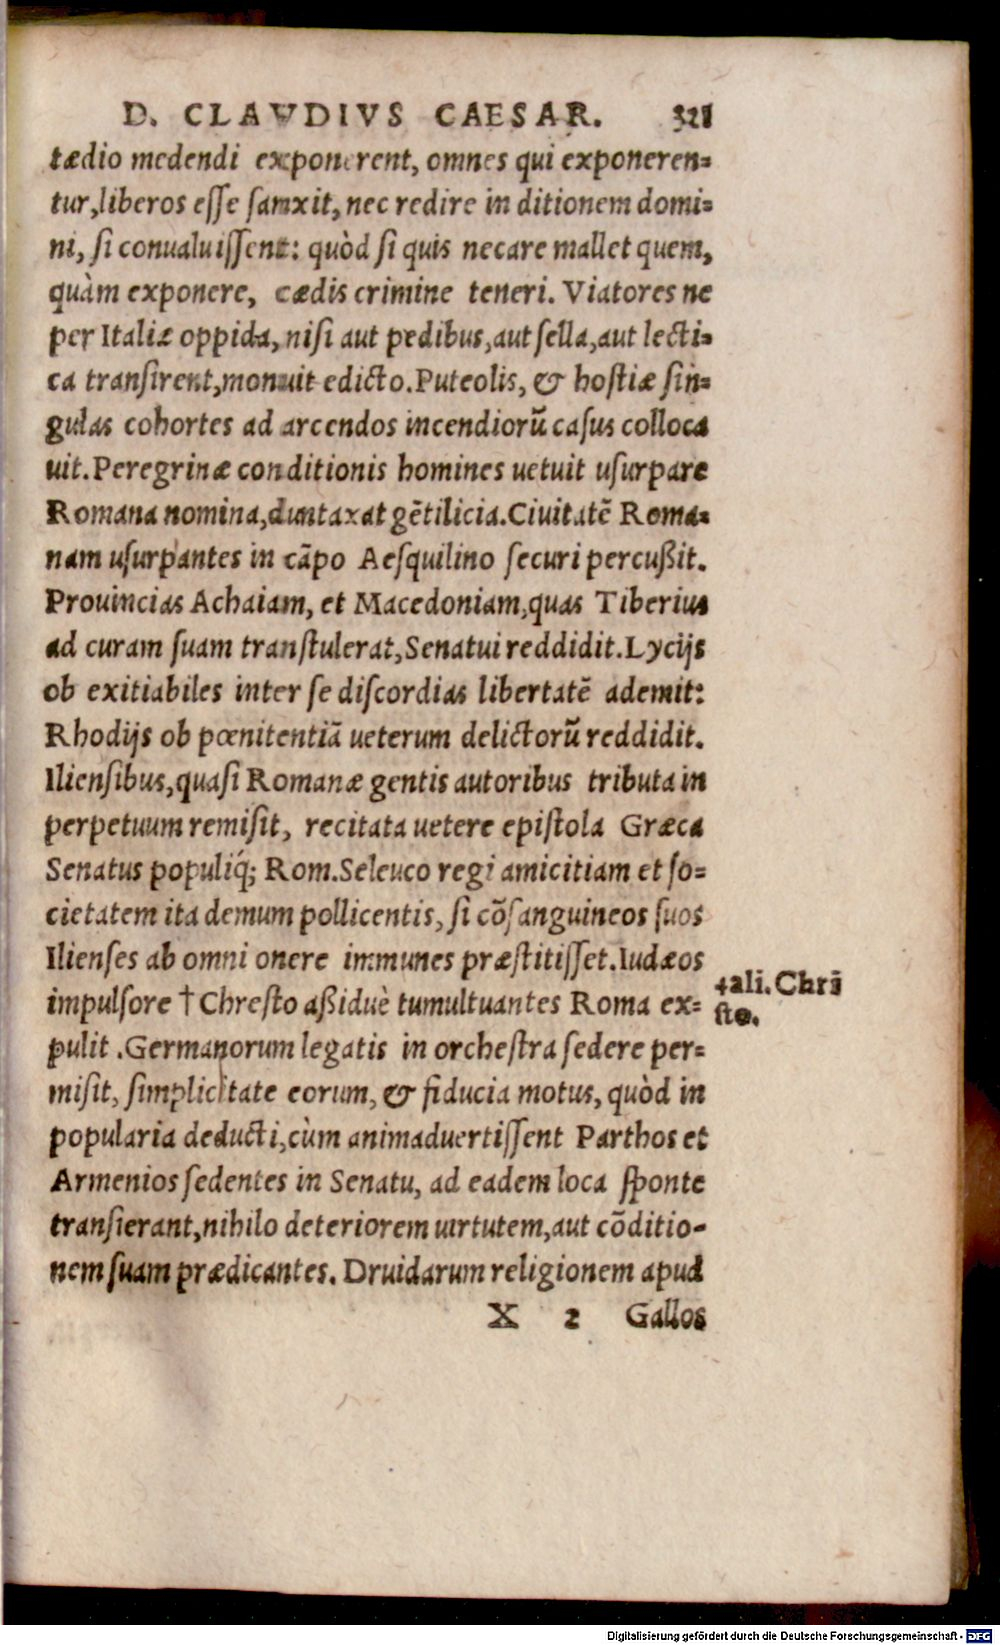 D. CLAVDIVS CAESAR. 321
tædio medendi exponerent, omnes qui exponeren=
tur, liberos eſſe ſanxit, nec redire in ditionem domi=
ni, ſi conualuiſſent: quòd ſi quis necare mallet quem,
quàm exponere, cædis crimine teneri. Viatores ne
per Italiæ oppida, niſi aut pedibus, aut ſella, aut lecti=
ca tranſirent, monuit edicto. Puteolis, & hoſtiæ ſin=
gulas cohortes ad arcendos incendiorũ caſus colloca
uit. Peregrinæ conditionis homines uetuit uſurpare
Romana nomina, duntaxat gẽtilicia. Ciuitatẽ Roma=
nam uſurpantes in cãpo Aeſquilino ſecuri percußit.
Prouincias Achaiam, et Macedoniam, quas Tiberius
ad curam ſuam tranſtulerat, Senatui reddidit. Lycijs
ob exitiabiles inter ſe diſcordias libertatẽ ademit:
Rhodijs ob pœnitentiã ueterum delictorũ reddidit.
Ilienſibus, quaſi Romanæ gentis autoribus tributa in
perpetuum remiſit, recitata uetere epiſtola Græca
Senatus populiq́; Rom. Seleuco regi amicitiam et ſo=
cietatem ita demum pollicentis, ſi cõſanguineos ſuos
Ilienſes ab omni onere immunes præſtitiſſet. Iudæos
impulſore † Chreſto aßiduè tumultuantes Roma ex=
pulit. Germanorum legatis in orcheſtra ſedere per=
miſit, ſimplicitate eorum, & fiducia motus, quòd in
popularia deducti, cùm animaduertiſſent Parthos et
Armenios ſedentes in Senatu, ad eadem loca ſponte
tranſierant, nihilo deteriorem uirtutem, aut cõditio-
nem ſuam prædicantes. Druidarum religionem apud
X 2 Gallos
†ali. Chri
ſto.
Digitalisierung gefördert durch die Deutsche Forschungsgemeinschaft - DFG